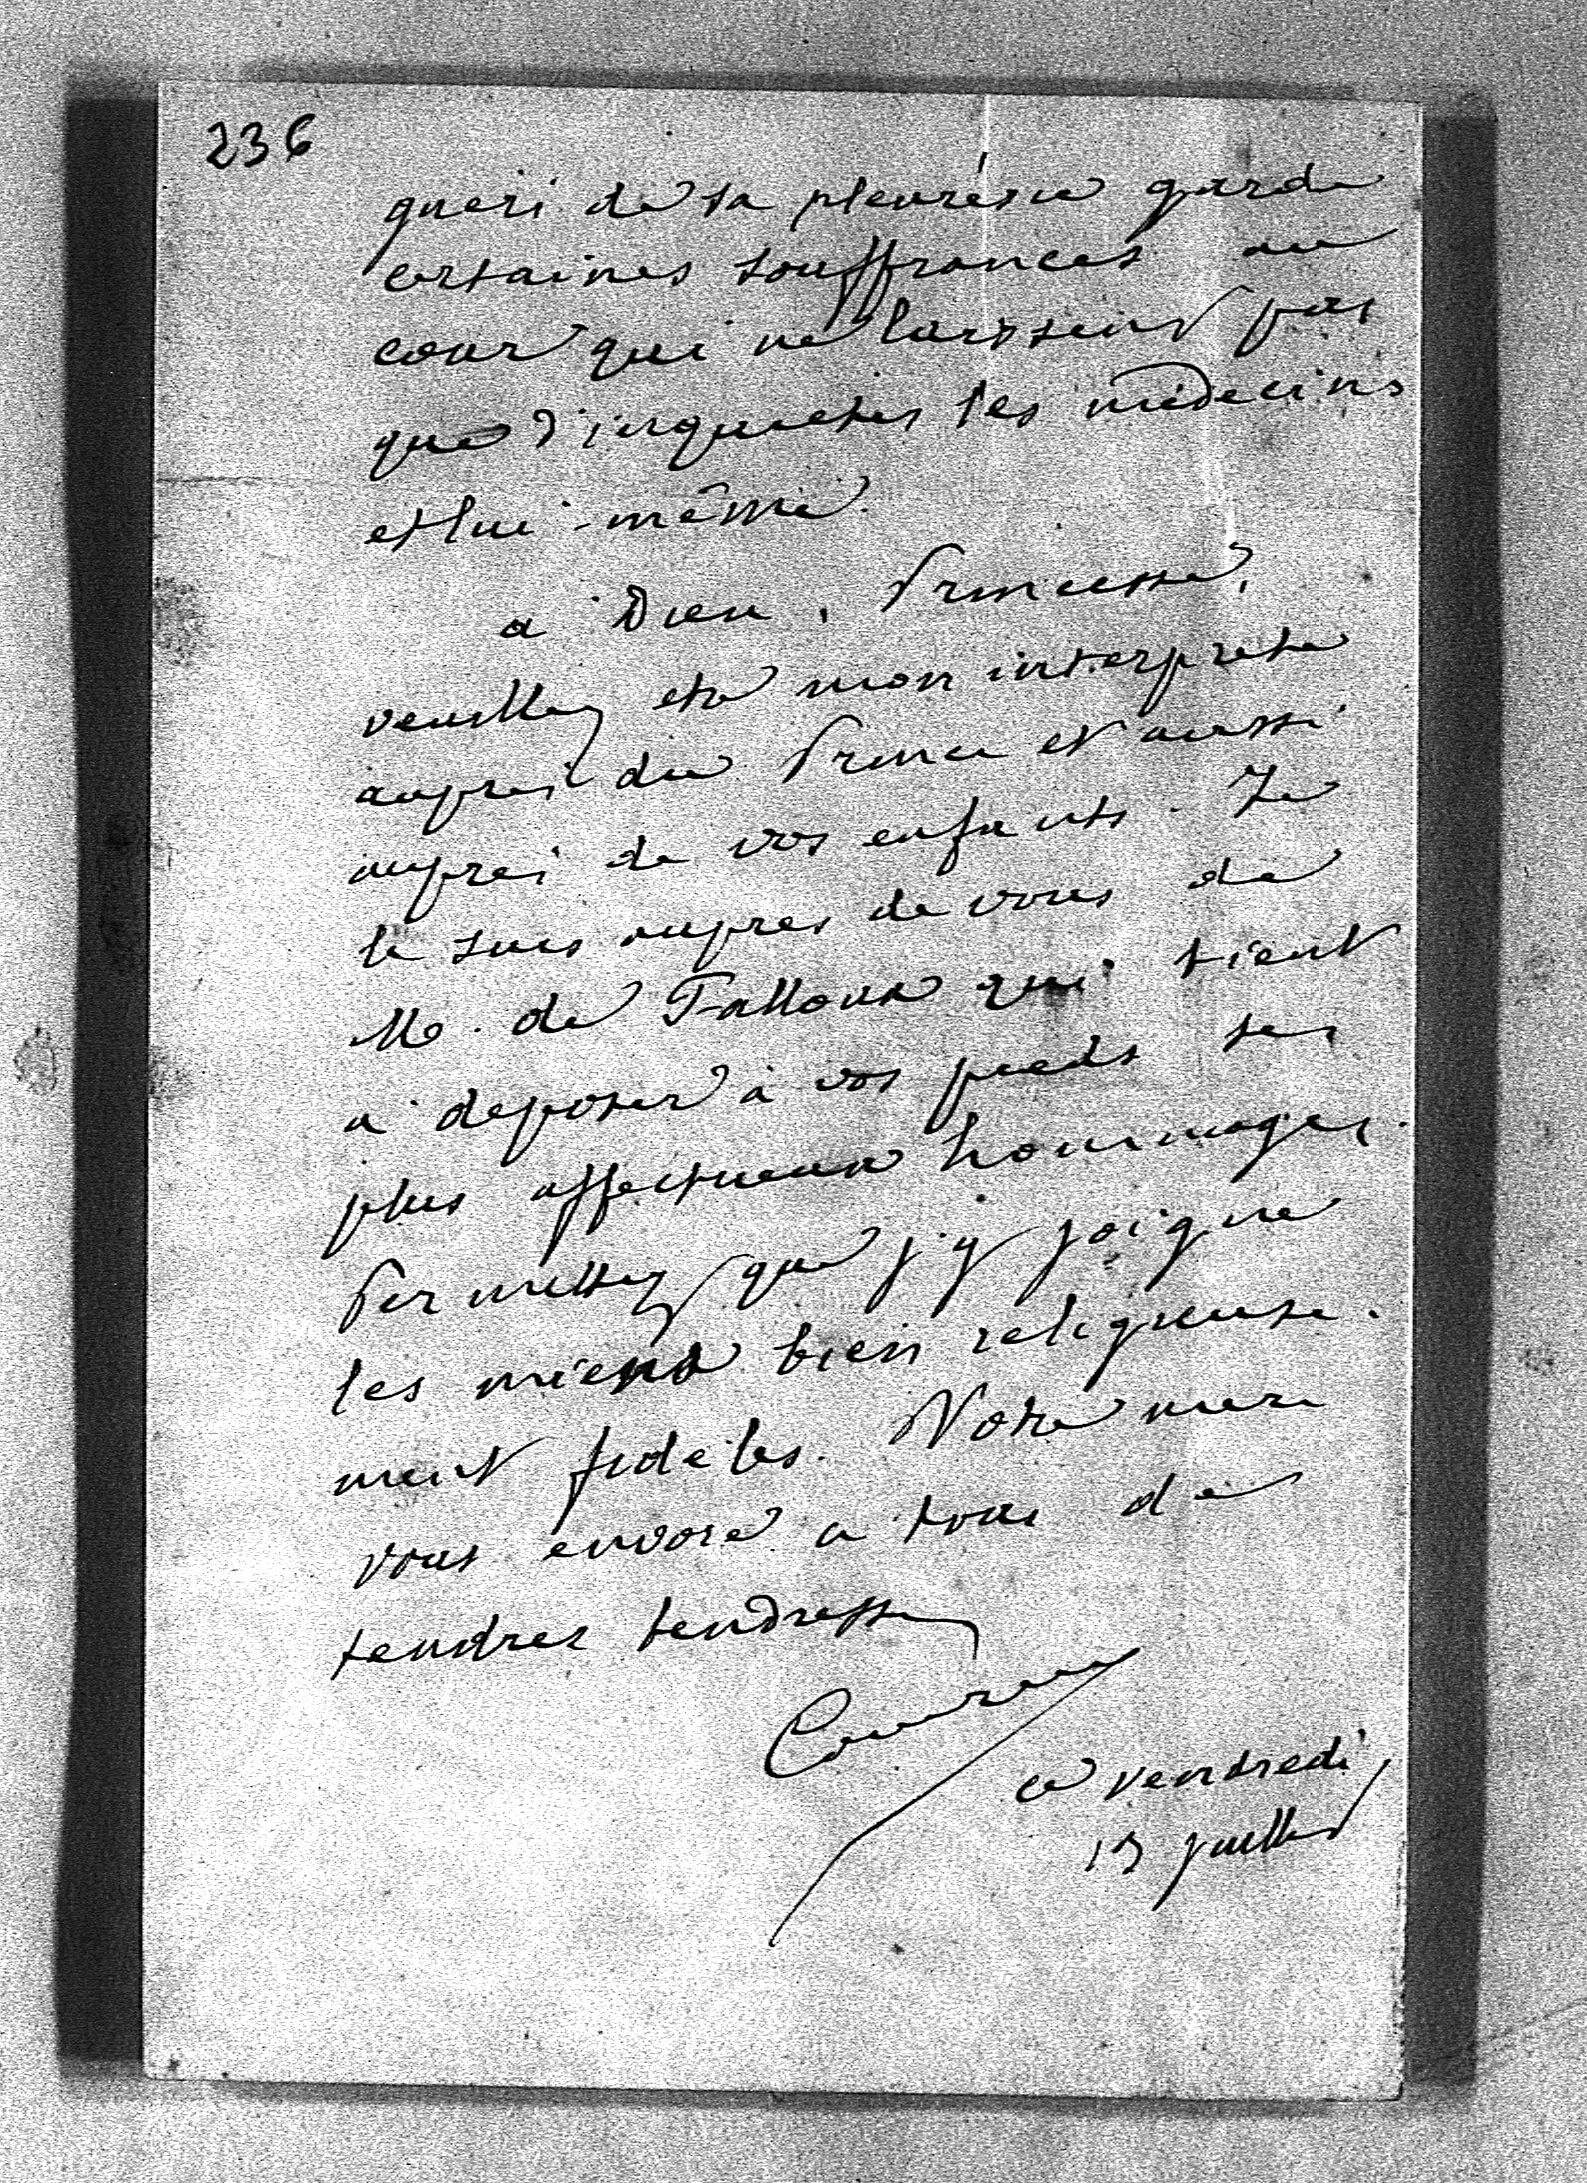 236
gueri de sa pleurésie garde
certaines souffrances au
cœur qui ne laissent pas
que d'inquieter les médecins
et lui-même.
a Dieu, Princesse,
veuillez etre mon interprete
aupres du Prince et aussi
aupres de vos enfants. Je
le suis aupres de vous de
M. de Falloux qui tient
a deposer à vos pieds ses
plus affectueux hommages.
Permettez que j'y joigne
les miens bien religieuse-
ment fideles. Notre mere
vous envoie a tous de
tendres tendresses
ce vendredi
13 juillet